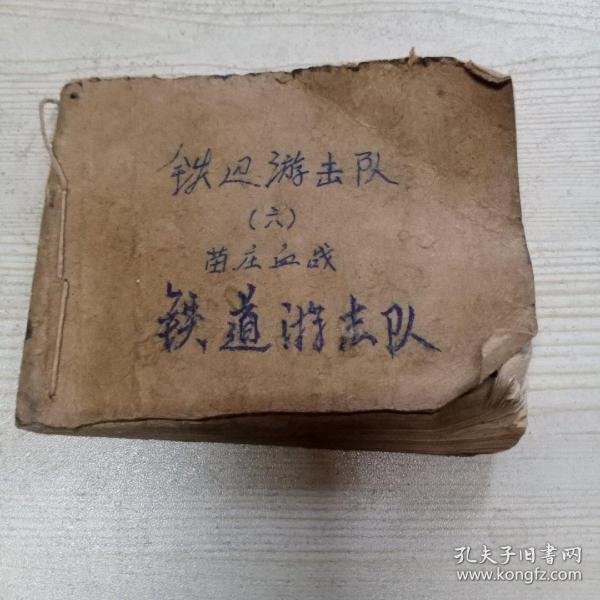 铁辺游击队
(六)
苗庄血战
铁道游击队
孔夫子旧書网
www.kongfz.com